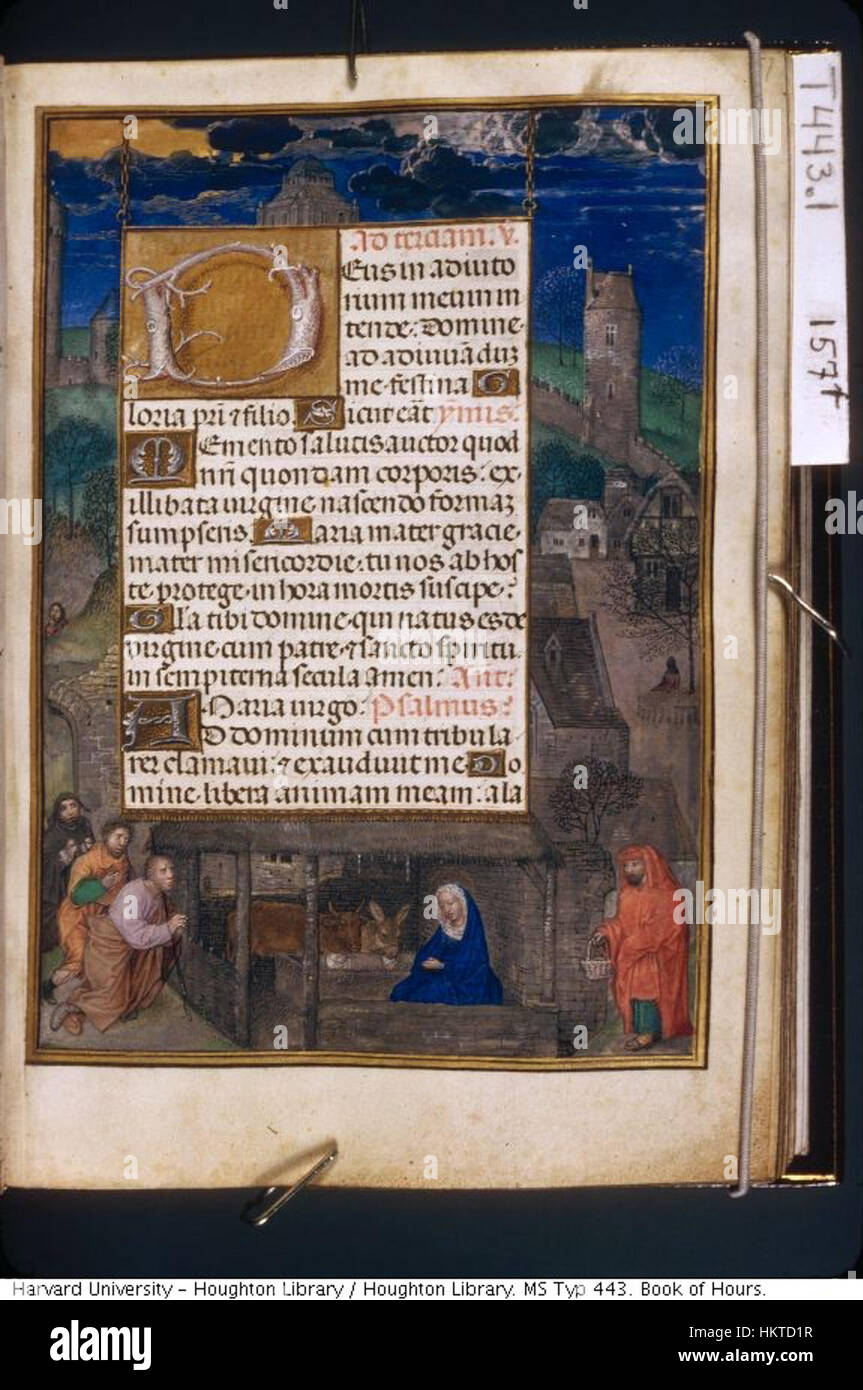 Ad terciam. v.
Deus in adiuto
rium meum in
tende. Domine
ad adiuuāduȝ
me festina G
loria pr̄i ⁊ filio. Sicut eāt ym̄is.
Memento salutis auctor quod
nr̄i quondam corporis. ex
illibata uirgine nascendo formaȝ
sumpseris. Maria mater gracie
mater misericordie. tu nos ab hos
te protege in hora mortis suscipe.
Gl̄a tibi domine qui natus es de
uirgine cum patre ⁊ sancto spiritu.
in sempiterna secula amen. Ant.
Maria uirgo. Psalmus.
AD dominum cum tribula
rer clamaui. ⁊ exaudiuit me Do
mine libera animam meam. a la
T443.1 157r
Harvard University - Houghton Library / Houghton Library. MS Typ 443. Book of Hours.
alamy
Image ID: HKTD1R
www.alamy.com